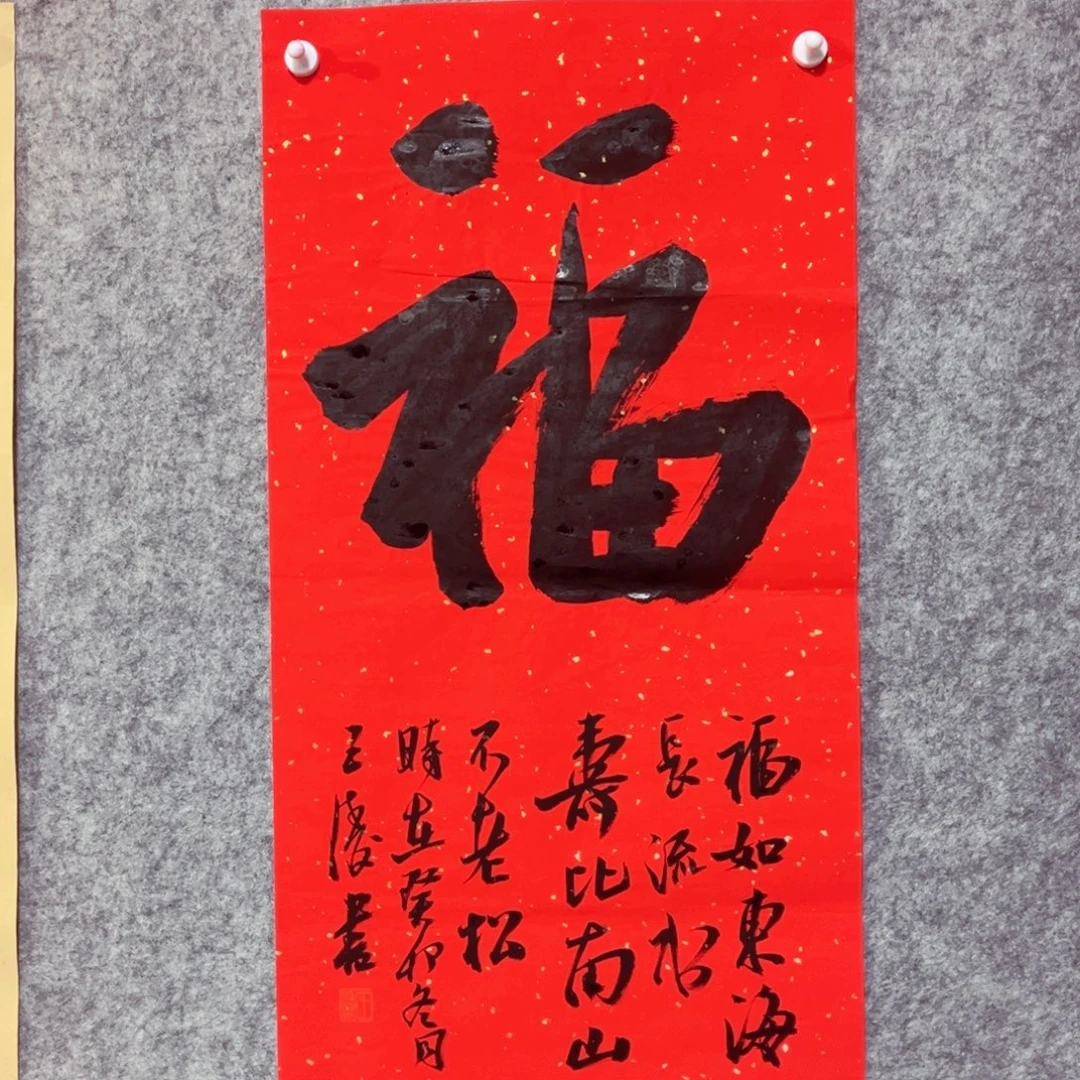 福
福如東海
長流水
壽比南山
不老松
時在癸卯冬月
王凌書